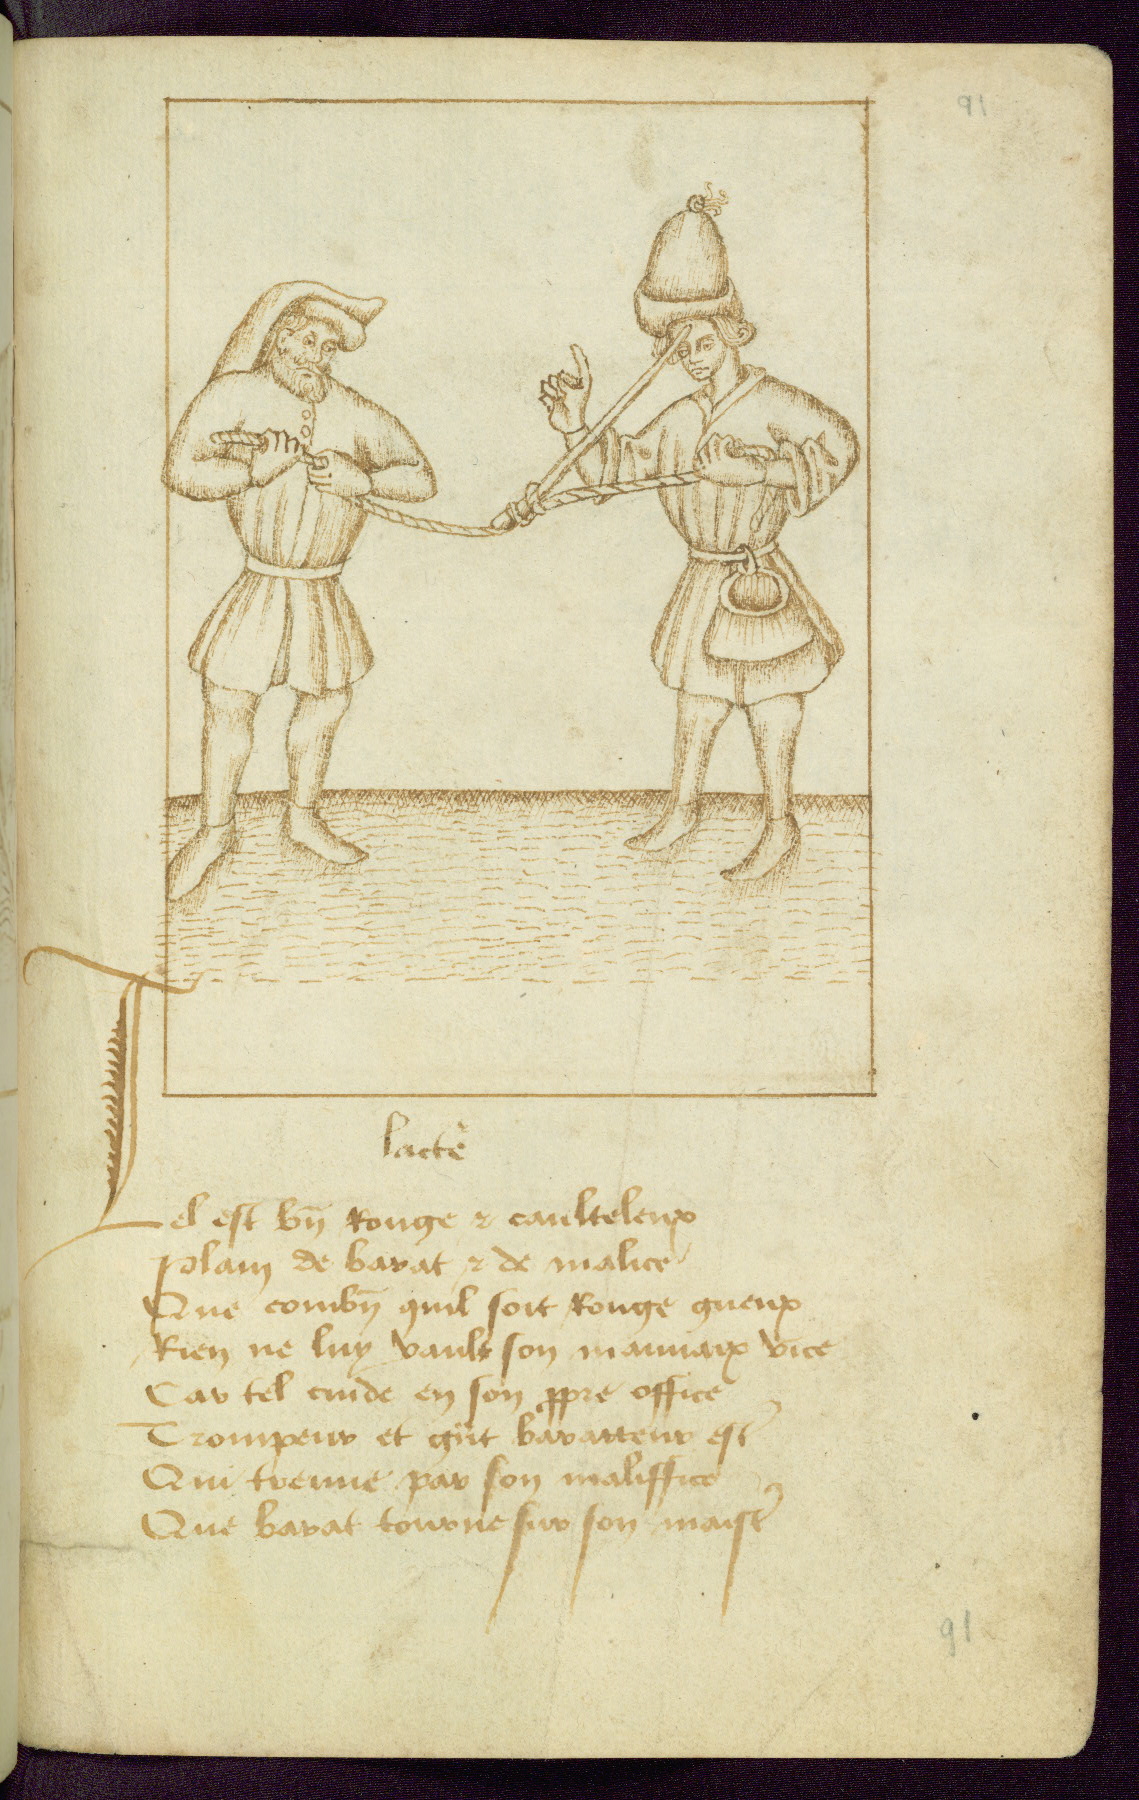 91
lacteur
Tel est bn̄ Rouge & caulteleux
Plain de barat & de malice
Que combn̄ quil soit Rouge gueux
Rien ne luy vault son mauuaix vice
Car tel cuide en son ppre office
Trompeur et gn̄t baratteur estr̄
Qui treuue par son maliffice
Que barat tourne sur son maistr̄
91